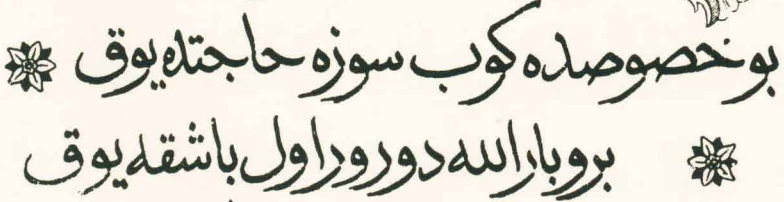 بو خصوصده كوب سوزه حاجتده يوق
بر و بار الله دورور اول باشقه يوق